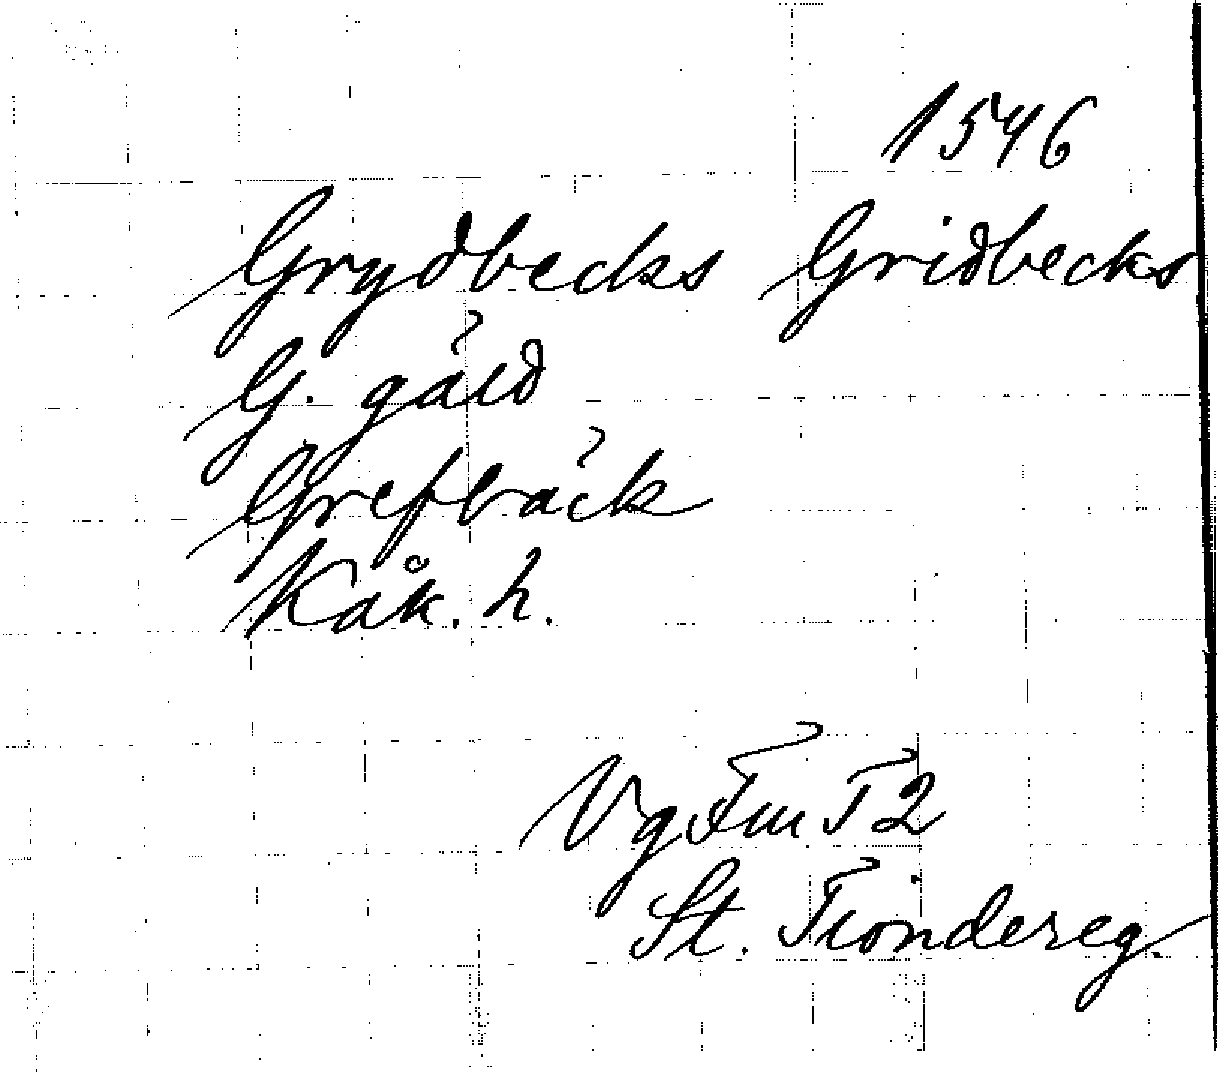 1546
Grydbecks Gridbecks
G. gäld
Grefbäck
Kåk. h.
Vg Fm T2
St. Tiondereg.